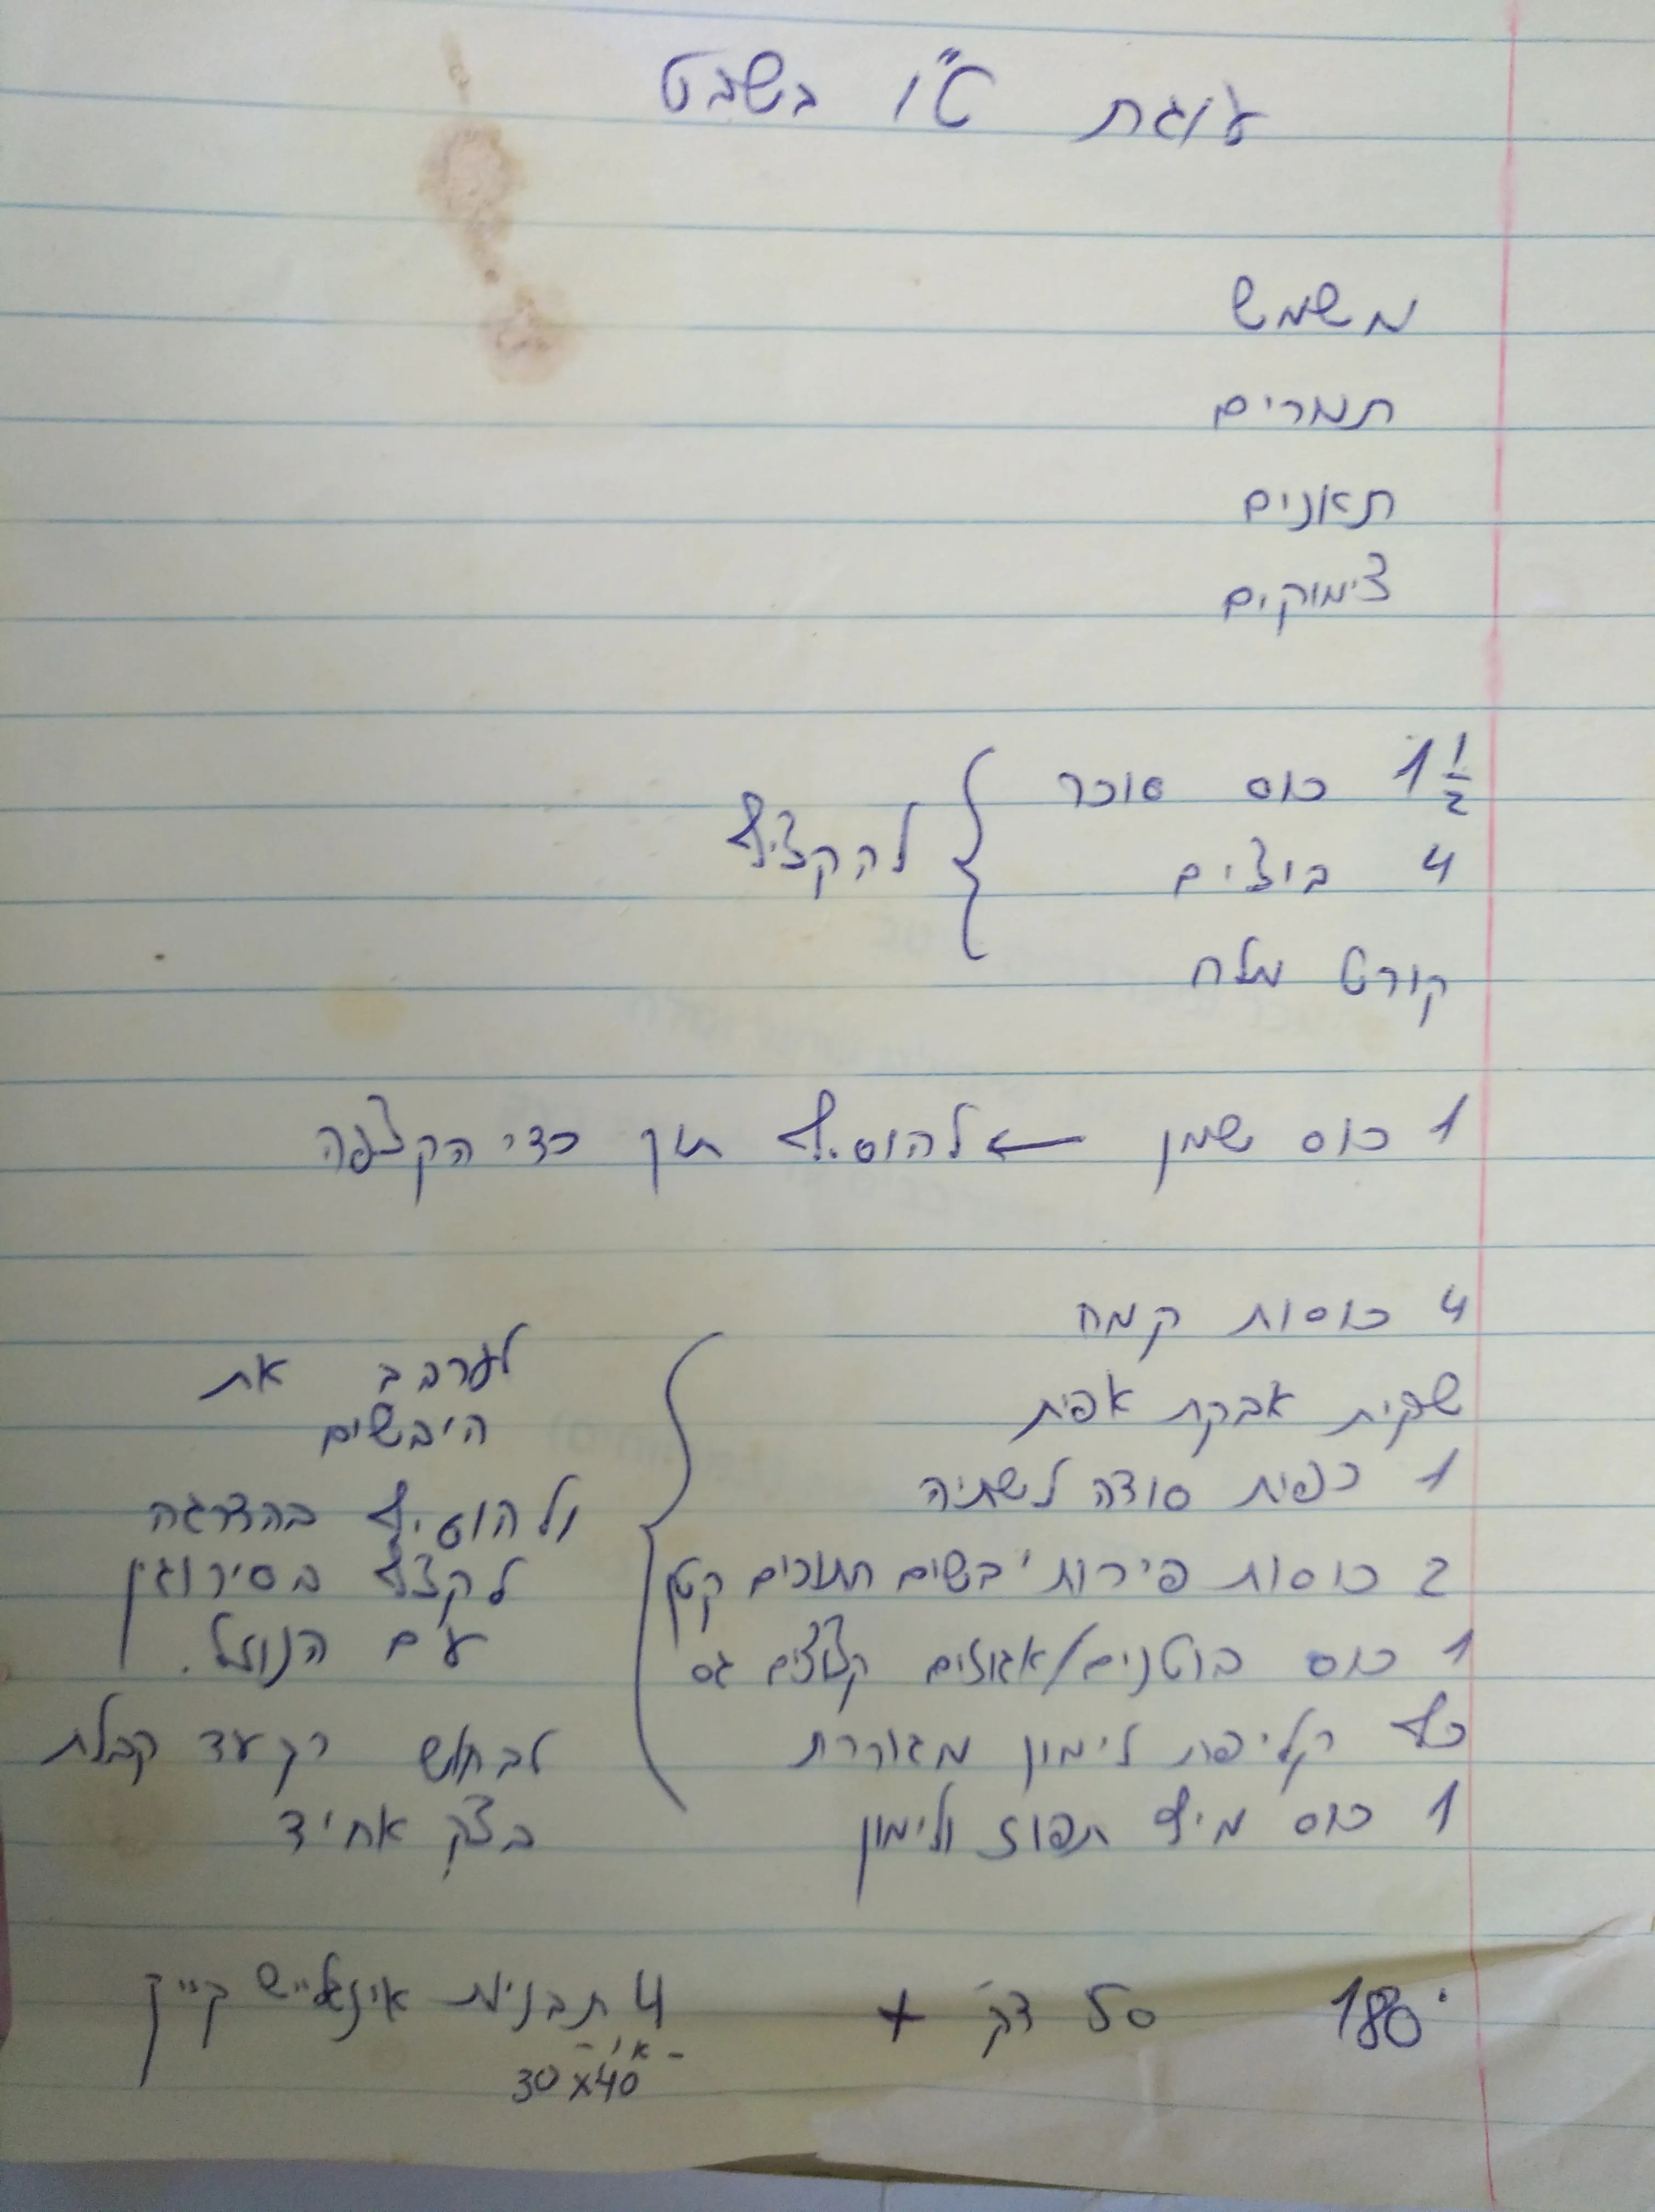 עוגת ט"ו בשבט
משמש
תמרים
תאנים
צימוקים
1 1/2 כוס סוכר
4 ביצים
קורט מלח
להקציף
1 כוס שמן ← להוסיף תוך כדי הקצפה
4 כוסות קמח
שקית אבקת אפית
1 כפית סודה לשתיה
2 כוסות פירות יבשים חתוכים קטן
1 כוס בוטנים/אגוזים קצוצים גס
כף קליפת לימון מגוררת
1 כוס מיץ תפוז ולימון
לערבב את
היבשים
ולהוסיף בהדרגה
לקצף בסירוגין
עם הנוזל.
לבחוש רק עד קבלת
בצק אחיד
180° דק' + 4 תבניות אינגליש קייק
- או -
30x40